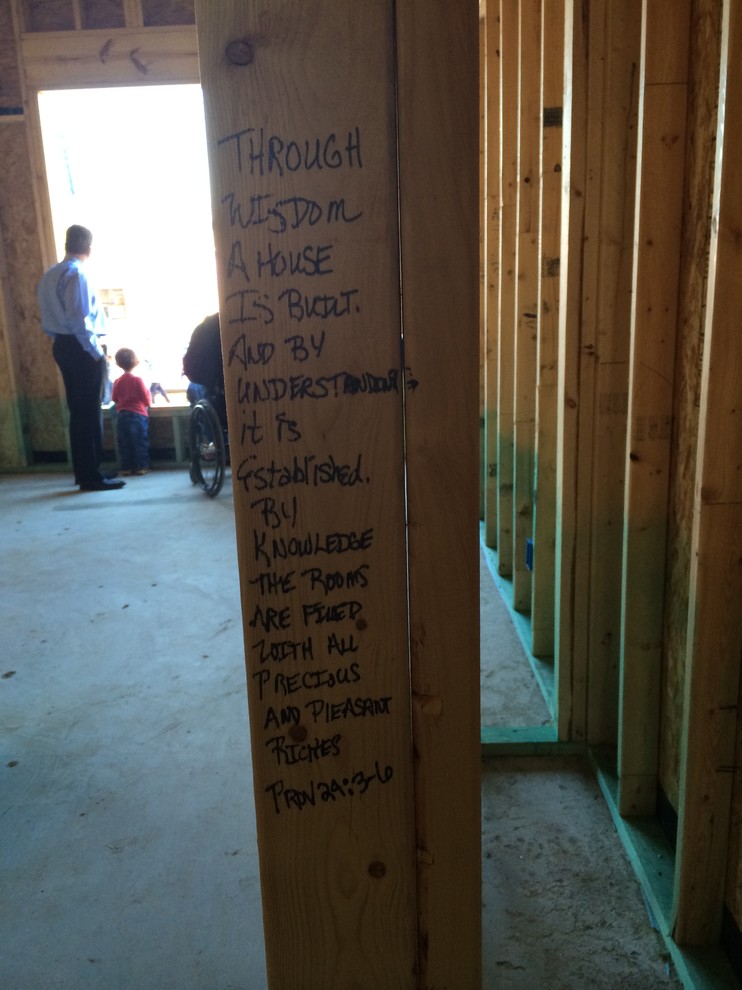 THROUGH
WISDOM
A HOUSE
IS BUILT.
AND BY
UNDERSTANDING
it is
Established.
BY
KNOWLEDGE
THE ROOMS
ARE FILLED
WITH ALL
PRECIOUS
AND PLEASANT
RICHES
PROV 24:3-6